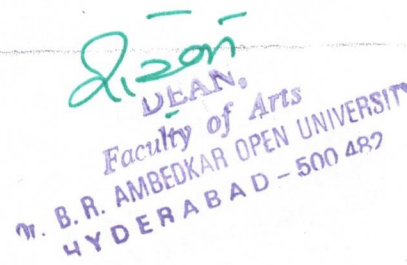 DEAN,
Faculty of Arts
Dr. B. R. AMBEDKAR OPEN UNIVERSITY
HYDERABAD - 500 482